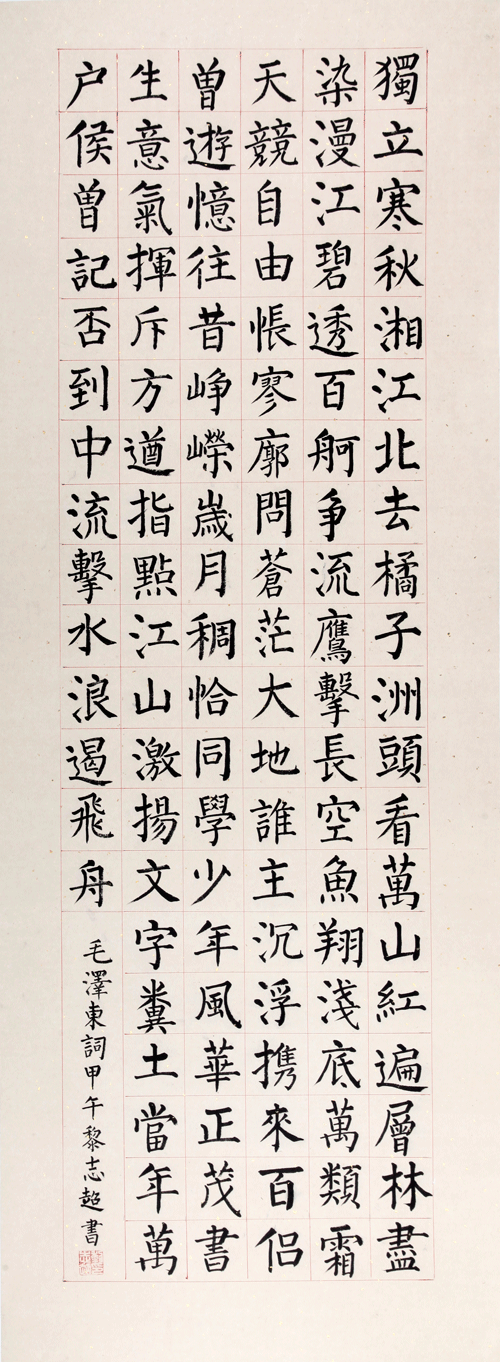 獨立寒秋湘江北去橘子洲頭看萬山紅遍層林盡
染漫江碧透百舸争流鷹擊長空魚翔淺底萬類霜
天競自由悵寥廓問蒼茫大地誰主沉浮携來百侣
曾遊憶往昔峥嶸歲月稠恰同學少年風華正茂書
生意氣揮斥方遒指點江山激揚文字糞土當年萬
户侯曾記否到中流擊水浪遏飛舟
毛澤東詞甲午黎志超書